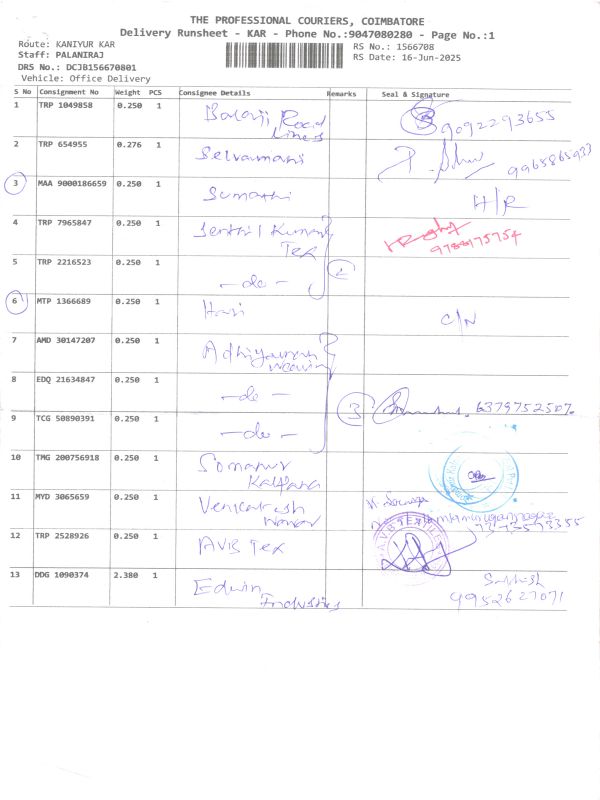 THE PROFESSIONAL COURIERS, COIMBATORE
Delivery Runsheet - KAR - Phone No.:9047080280 - Page No.:1
Route: KANIYUR KAR
RS No.: 1566708
Staff: PALANIRAJ
RS Date: 16-Jun-2025
DRS No.: DCJB156670801
Vehicle: Office Delivery
S No Consignment No Weight PCS Consignee Details Remarks Seal & Signature
1 TRP 1049858 0.250 1 Balaji Road 9092293655
Lines
2 TRP 654955 0.276 1 Selvamani
3 MAA 9000186659 0.250 1 Sumathi H/R
4 TRP 7965847 0.250 1 Senthil Kumar
Tex 9788175754
5 TRP 2216523 0.250 1 - do - 2
6 MTP 1366689 0.250 1 Hari C/N
7 AMD 30147207 0.250 1 Adhiyaman
Weaving
8 EDQ 21634847 0.250 1 - do - 3 6379752507
9 TCG 50890391 0.250 1 - do -
10 TMG 200756918 0.250 1 Somanur
Kalpana
11 MYD 3065659 0.250 1 Venkatesh
12 TRP 2528926 0.250 1 AVB Tex
13 DDG 1090374 2.380 1 Edwin
Industries
9952627071